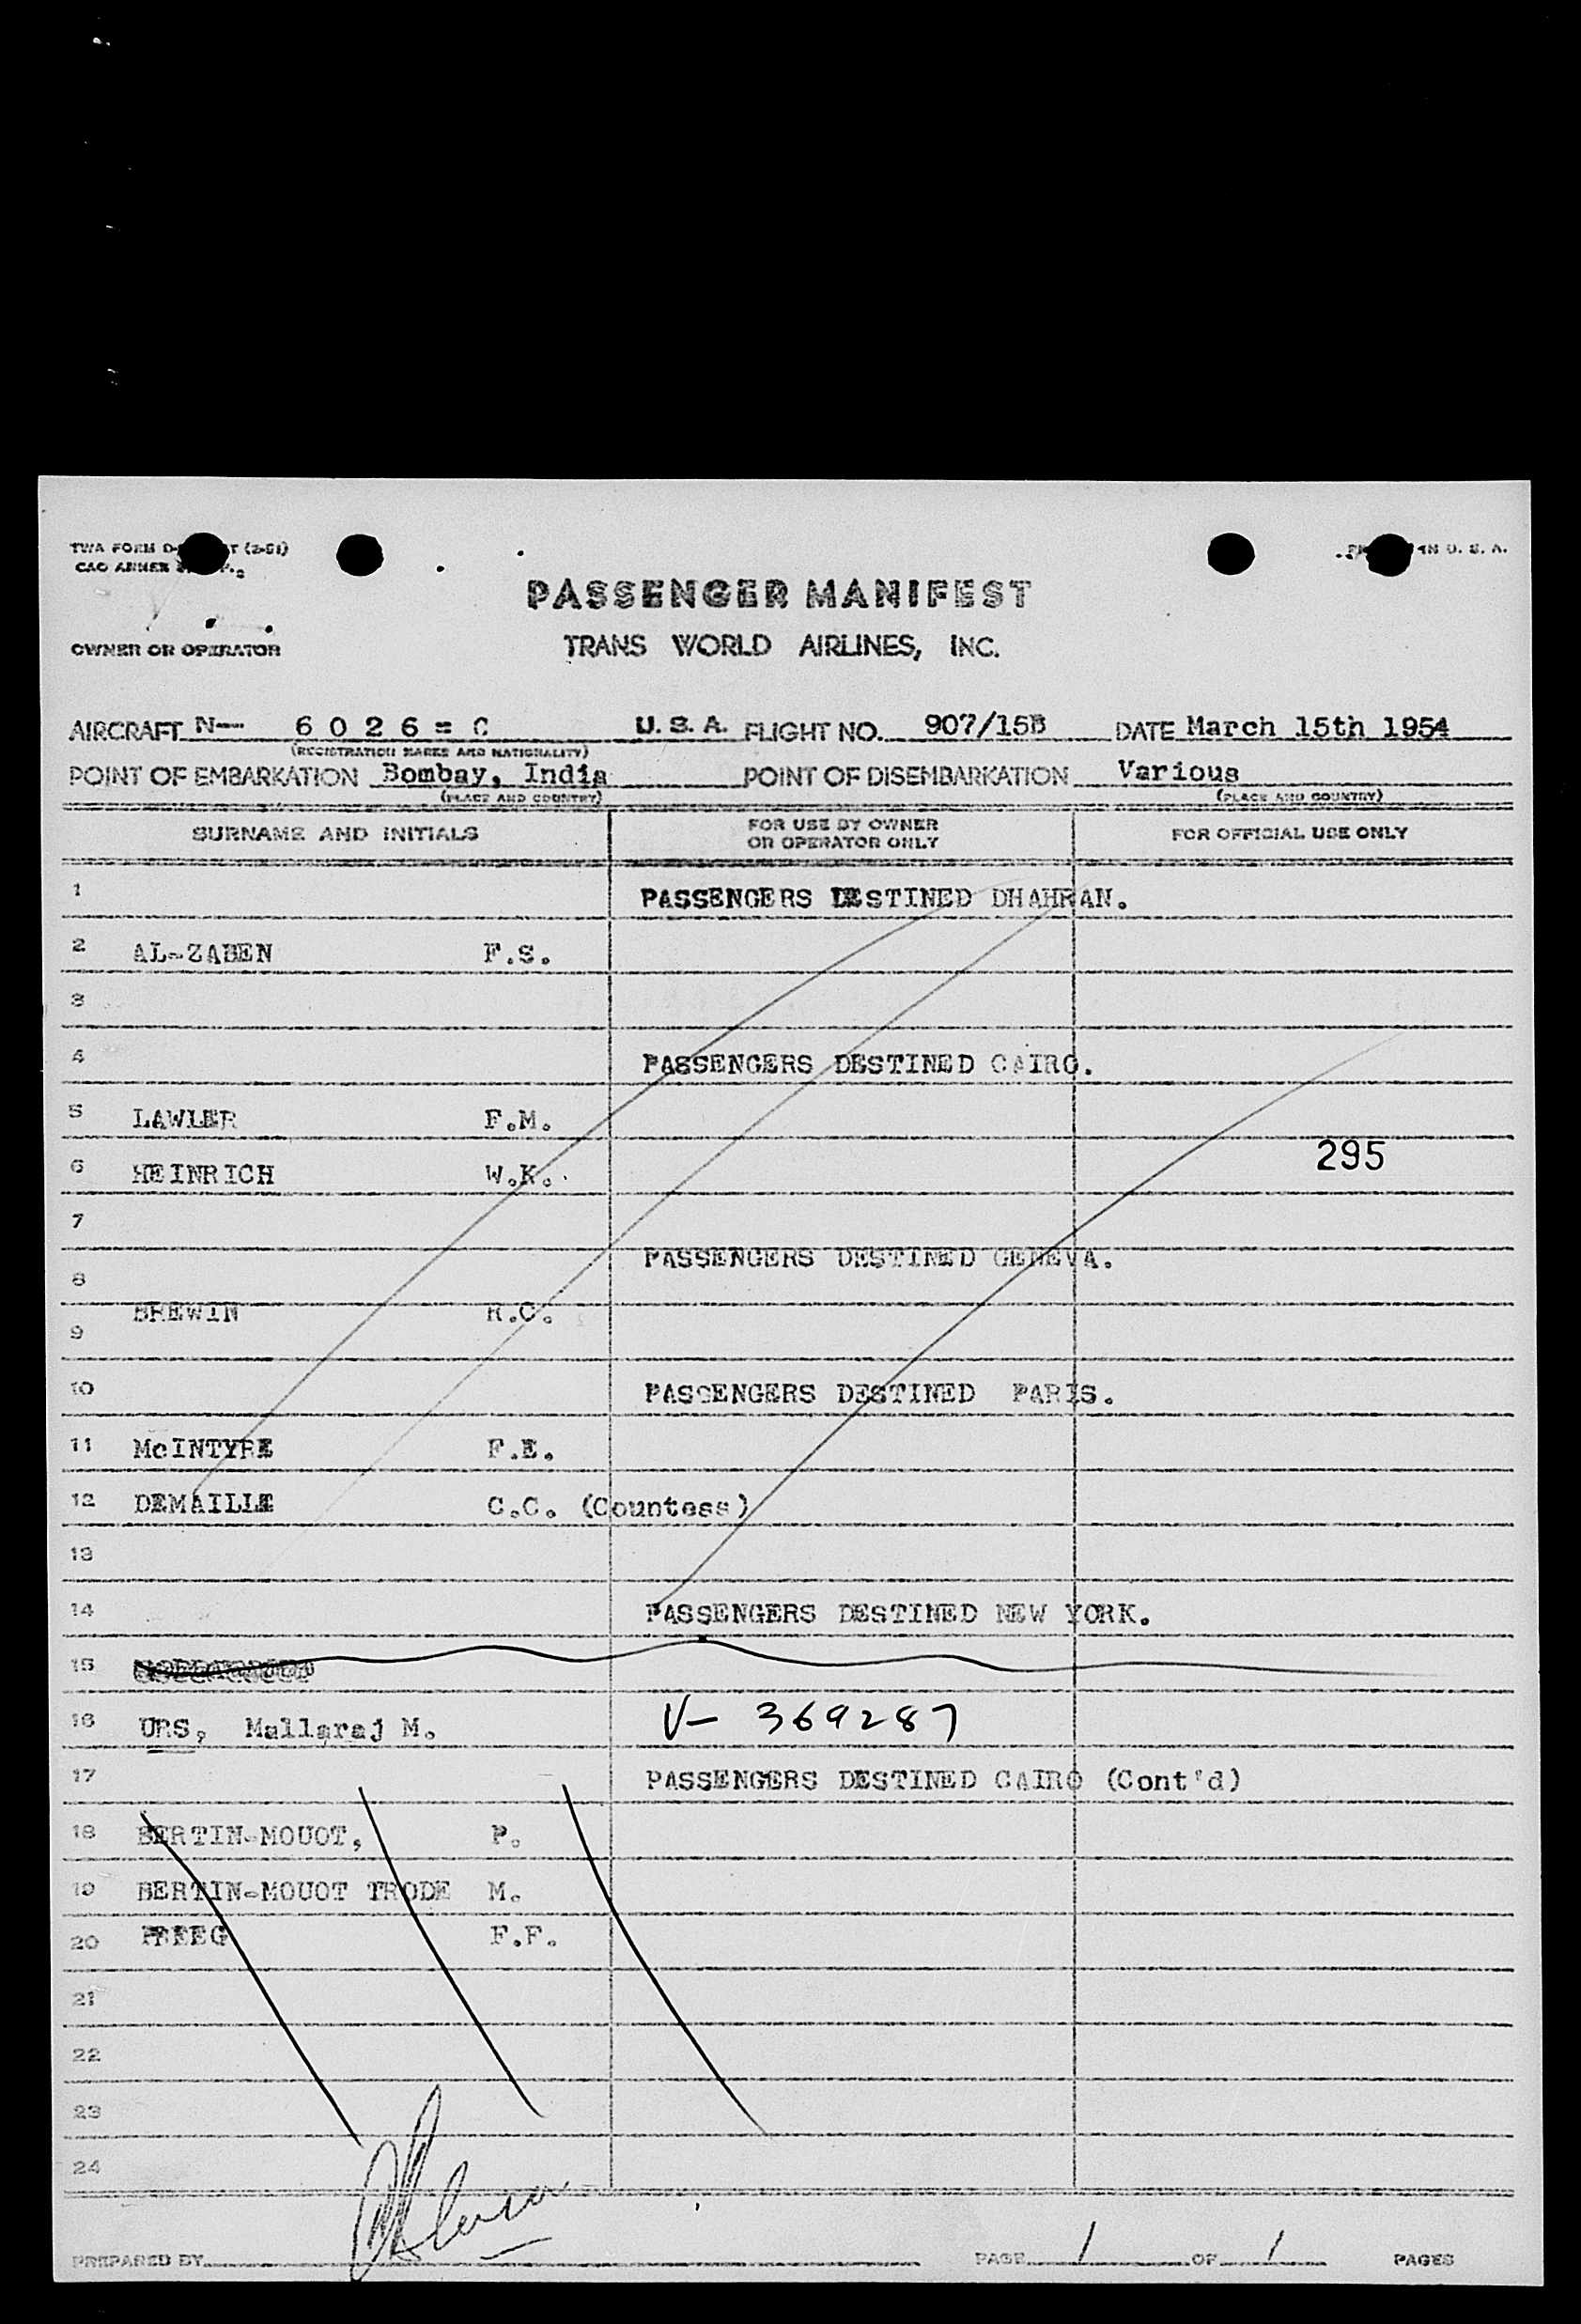 TWA FORM D- T (2-51)
PR IN U. S. A.
CAO ANNEX
PASSENGER MANIFEST
OWNER OR OPERATOR TRANS WORLD AIRLINES, INC.
AIRCRAFT N— 6 0 2 6 = C U.S.A. FLIGHT NO. 907/15B DATE March 15th 1954
(REGISTRATION MARKS AND NATIONALITY)
POINT OF EMBARKATION Bombay, India POINT OF DISEMBARKATION Various
(PLACE AND COUNTRY) (PLACE AND COUNTRY)
SURNAME AND INITIALS FOR USE BY OWNER OR OPERATOR ONLY FOR OFFICIAL USE ONLY
1 PASSENGERS DESTINED DHAHRAN.
2 AL-ZABEN F.S.
3
4 PASSENGERS DESTINED CAIRO.
5 LAWLER F.M.
6 HEINRICH W.K. 295
7
PASSENGERS DESTINED GENEVA.
8
BREWIN R.C.
9
10 PASSENGERS DESTINED PARIS.
11 McINTYRE F.E.
12 DEMAILLE C.C. (Countess)
13
14 PASSENGERS DESTINED NEW YORK.
15
16 URS, Mallaraj M. V- 369287
17 PASSENGERS DESTINED CAIRO (Cont'd)
18 BERTIN-MOUOT, P.
19 BERTIN-MOUOT TRODE M.
20 F.F.
21
22
23
24
PREPARED BY PAGE 1 OF 1 PAGES